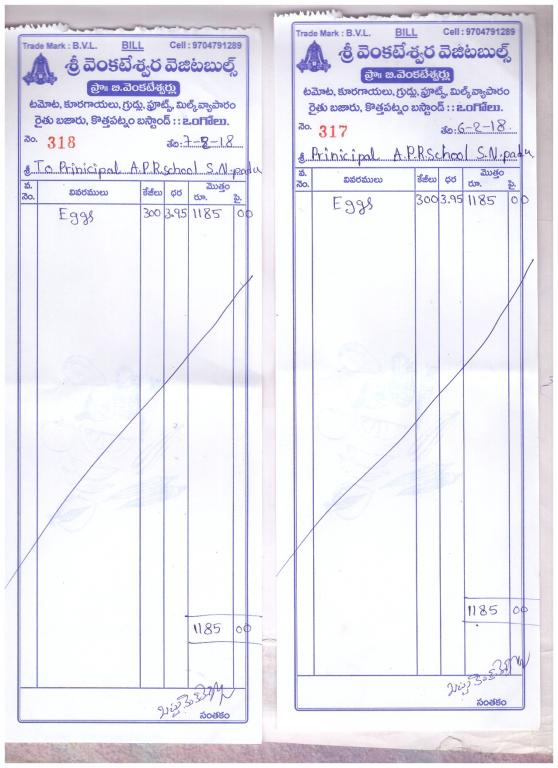 Trade Mark : B.V.L. BILL Cell : 9704791289
శ్రీ వెంకటేశ్వర వెజిటబుల్స్
ప్రొః బి.వెంకటేశ్వర్లు
టమోట, కూరగాయలు, గ్రుడ్లు, ఫ్రూట్స్, మిల్క్ వ్యాపారం
రైతు బజారు, కొత్తపట్నం బస్టాండ్ : : ఒంగోలు.
నెం. 318 తేది: 7-2-18
శ్రీ To Prinicipal A.P.R.School S.N.padu
వ. నెం. వివరములు కేజీలు ధర మొత్తం రూ. పై.
Eggs 300 3.95 1185 00
1185 00
సంతకం
Trade Mark : B.V.L. BILL Cell : 9704791289
శ్రీ వెంకటేశ్వర వెజిటబుల్స్
ప్రొః బి.వెంకటేశ్వర్లు
టమోట, కూరగాయలు, గ్రుడ్లు, ఫ్రూట్స్, మిల్క్ వ్యాపారం
రైతు బజారు, కొత్తపట్నం బస్టాండ్ : : ఒంగోలు.
నెం. 317 తేది: 6-2-18.
శ్రీ Prinicipal A.P.R.School S.N.padu
వ. నెం. వివరములు కేజీలు ధర మొత్తం రూ. పై.
Eggs 300 3.95 1185 00
1185 00
సంతకం